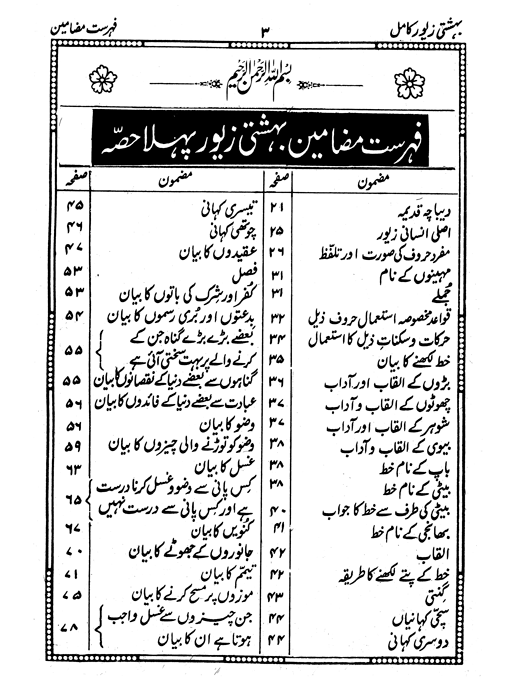 بہشتی زیور کامل
۳
فہرست مضامین
بسم اللہ الرحمن الرحیم
فہرست مضامین بہشتی زیور پہلا حصہ
مضمون صفحہ
دیباچہ قدیمہ ۲۱
اصلی انسانی زیور ۲۵
مفرد حروف کی صورت اور تلفظ ۲۶
مہینوں کے نام ۳۱
جملے ۳۱
قواعد مخصوصہ استعمال حروف ذیل ۳۲
حرکات و سکنات ذیل کا استعمال ۳۴
خط لکھنے کا بیان ۳۵
بڑوں کے القاب اور آداب ۳۶
چھوٹوں کے القاب و آداب ۳۷
شوہر کے القاب اور آداب ۳۷
بیوی کے القاب و آداب ۳۸
باپ کے نام خط ۳۸
بیٹی کے نام خط ۳۸
بیٹی کی طرف سے خط کا جواب ۴۰
بھانجی کے نام خط ۴۱
القاب ۴۲
خط کے پتے لکھنے کا طریقہ ۴۲
گنتی ۴۳
سچی کہانیاں ۴۴
دوسری کہانی ۴۴
مضمون صفحہ
تیسری کہانی ۴۵
چوتھی کہانی ۴۶
عقیدوں کا بیان ۴۷
فصل ۵۳
کفر اور شرک کی باتوں کا بیان ۵۳
بدعتوں اور بُری رسموں کا بیان ۵۴
بعضے بڑے بڑے گناہ جن کے
کرنے والے پر بہت سختی آئی ہے ۵۵
گناہوں سے بعضے دنیا کے نقصانوں کا بیان ۵۵
عبادت سے بعضے دنیا کے فائدوں کا بیان ۵۶
وضو کا بیان ۵۶
وضو کو توڑنے والی چیزوں کا بیان ۵۹
غسل کا بیان ۶۳
کس پانی سے وضو و غسل کرنا درست
ہے اور کس پانی سے درست نہیں ۶۵
کنویں کا بیان ۶۷
جانوروں کے جھوٹے کا بیان ۷۰
تیمم کا بیان ۷۱
موزوں پر مسح کرنے کا بیان ۷۵
جن چیزوں سے غسل واجب
ہوتا ہے ان کا بیان ۷۸